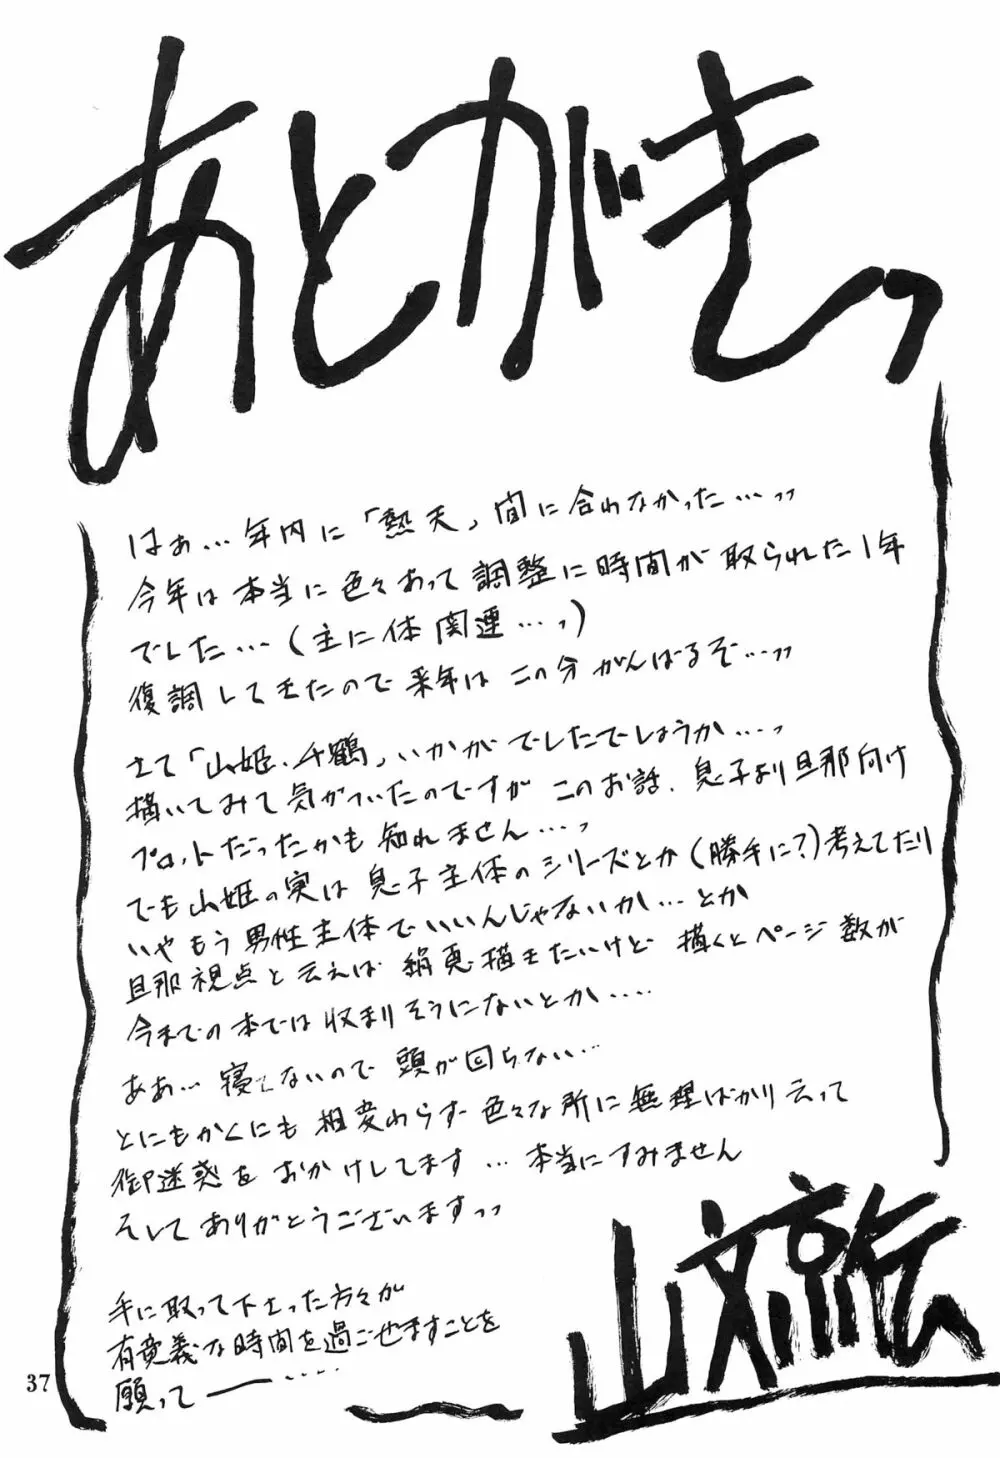 あとがきっ
はぁ…年内に「熱天」間に合わなかった…ッッ
今年は本当に色々あって調整に時間が取られた1年
でした…(主に体関連…ッ)
復調してきたので来年はこの分がんばるぞ…ッッ
さて「山姫、千鶴」いかがでしたでしょうか…ッ
描いてみて気がついたのですがこのお話、息子より旦那向け
プロットだったかも知れません…ッ
でも山姫の実は息子主体のシリーズとか(勝手に?)考えてたり
いやもう男性主体でいいんじゃないか…とか
旦那視点と云えば絹恵描きたいけど描くとページ数が
今までの本では収まりそうにないとか‥‥
ああ…寝てないので頭が回らない…
とにもかくにも相変わらず色々な所に無理ばかり云って
御迷惑をおかけしてます…本当にすみません
そしてありがとうございますッッ
手に取って下さった方々が
有意義な時間を過ごせますことを
願って――‥‥
山文京伝
37